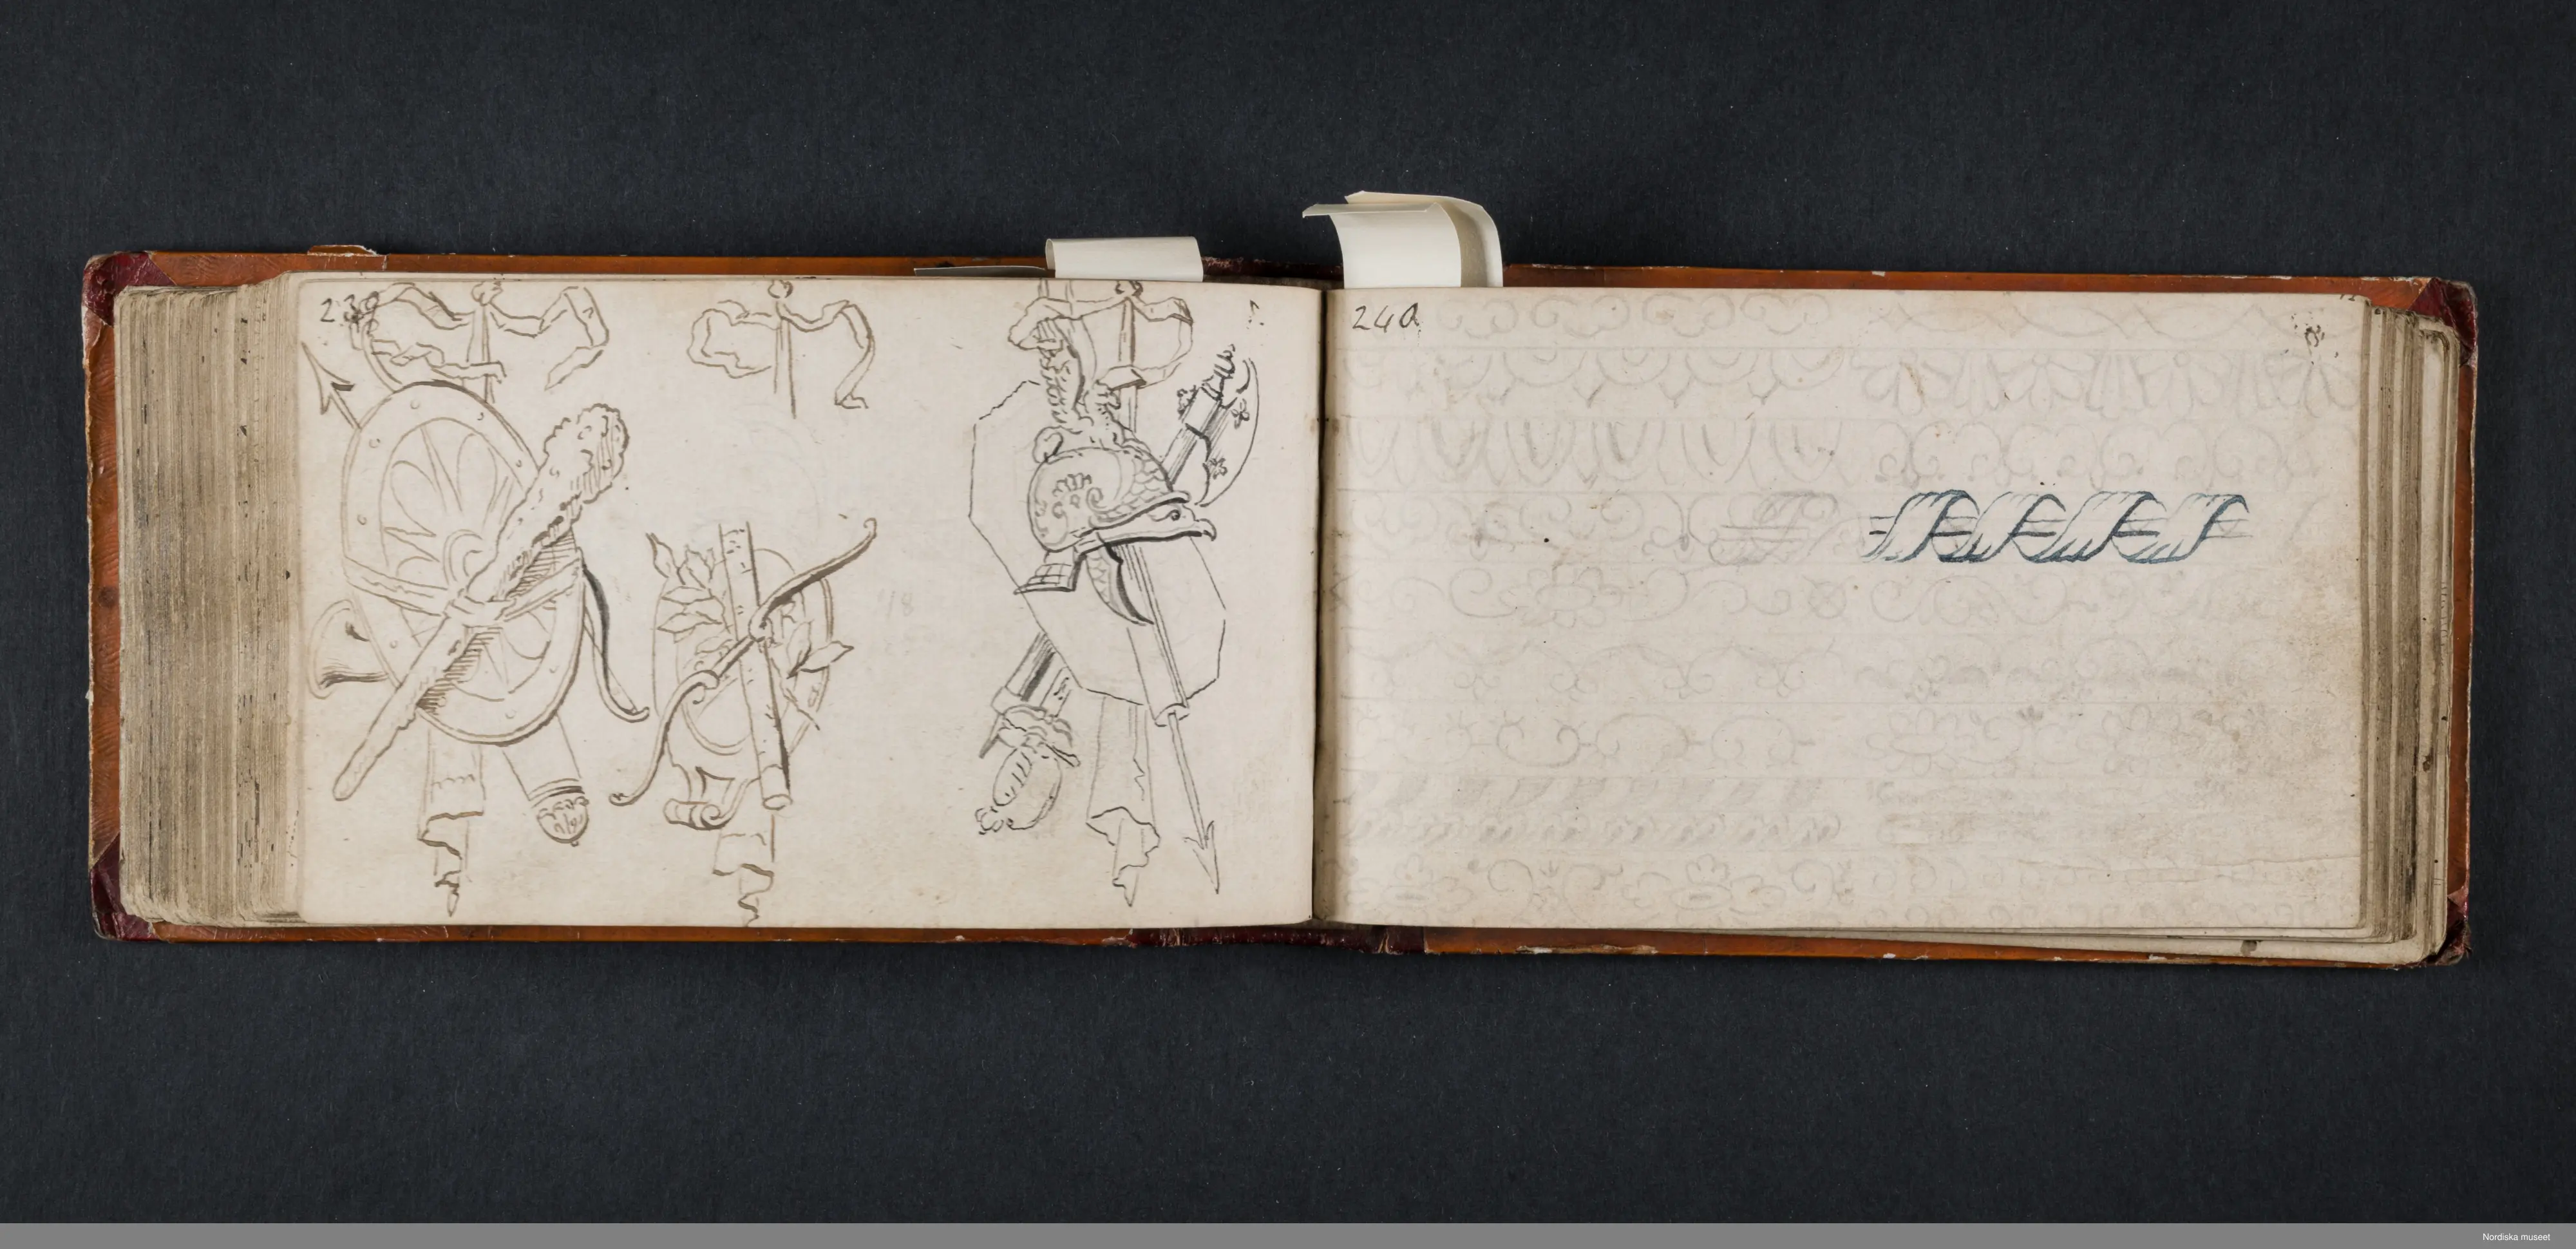 239
240
Nordiska museet